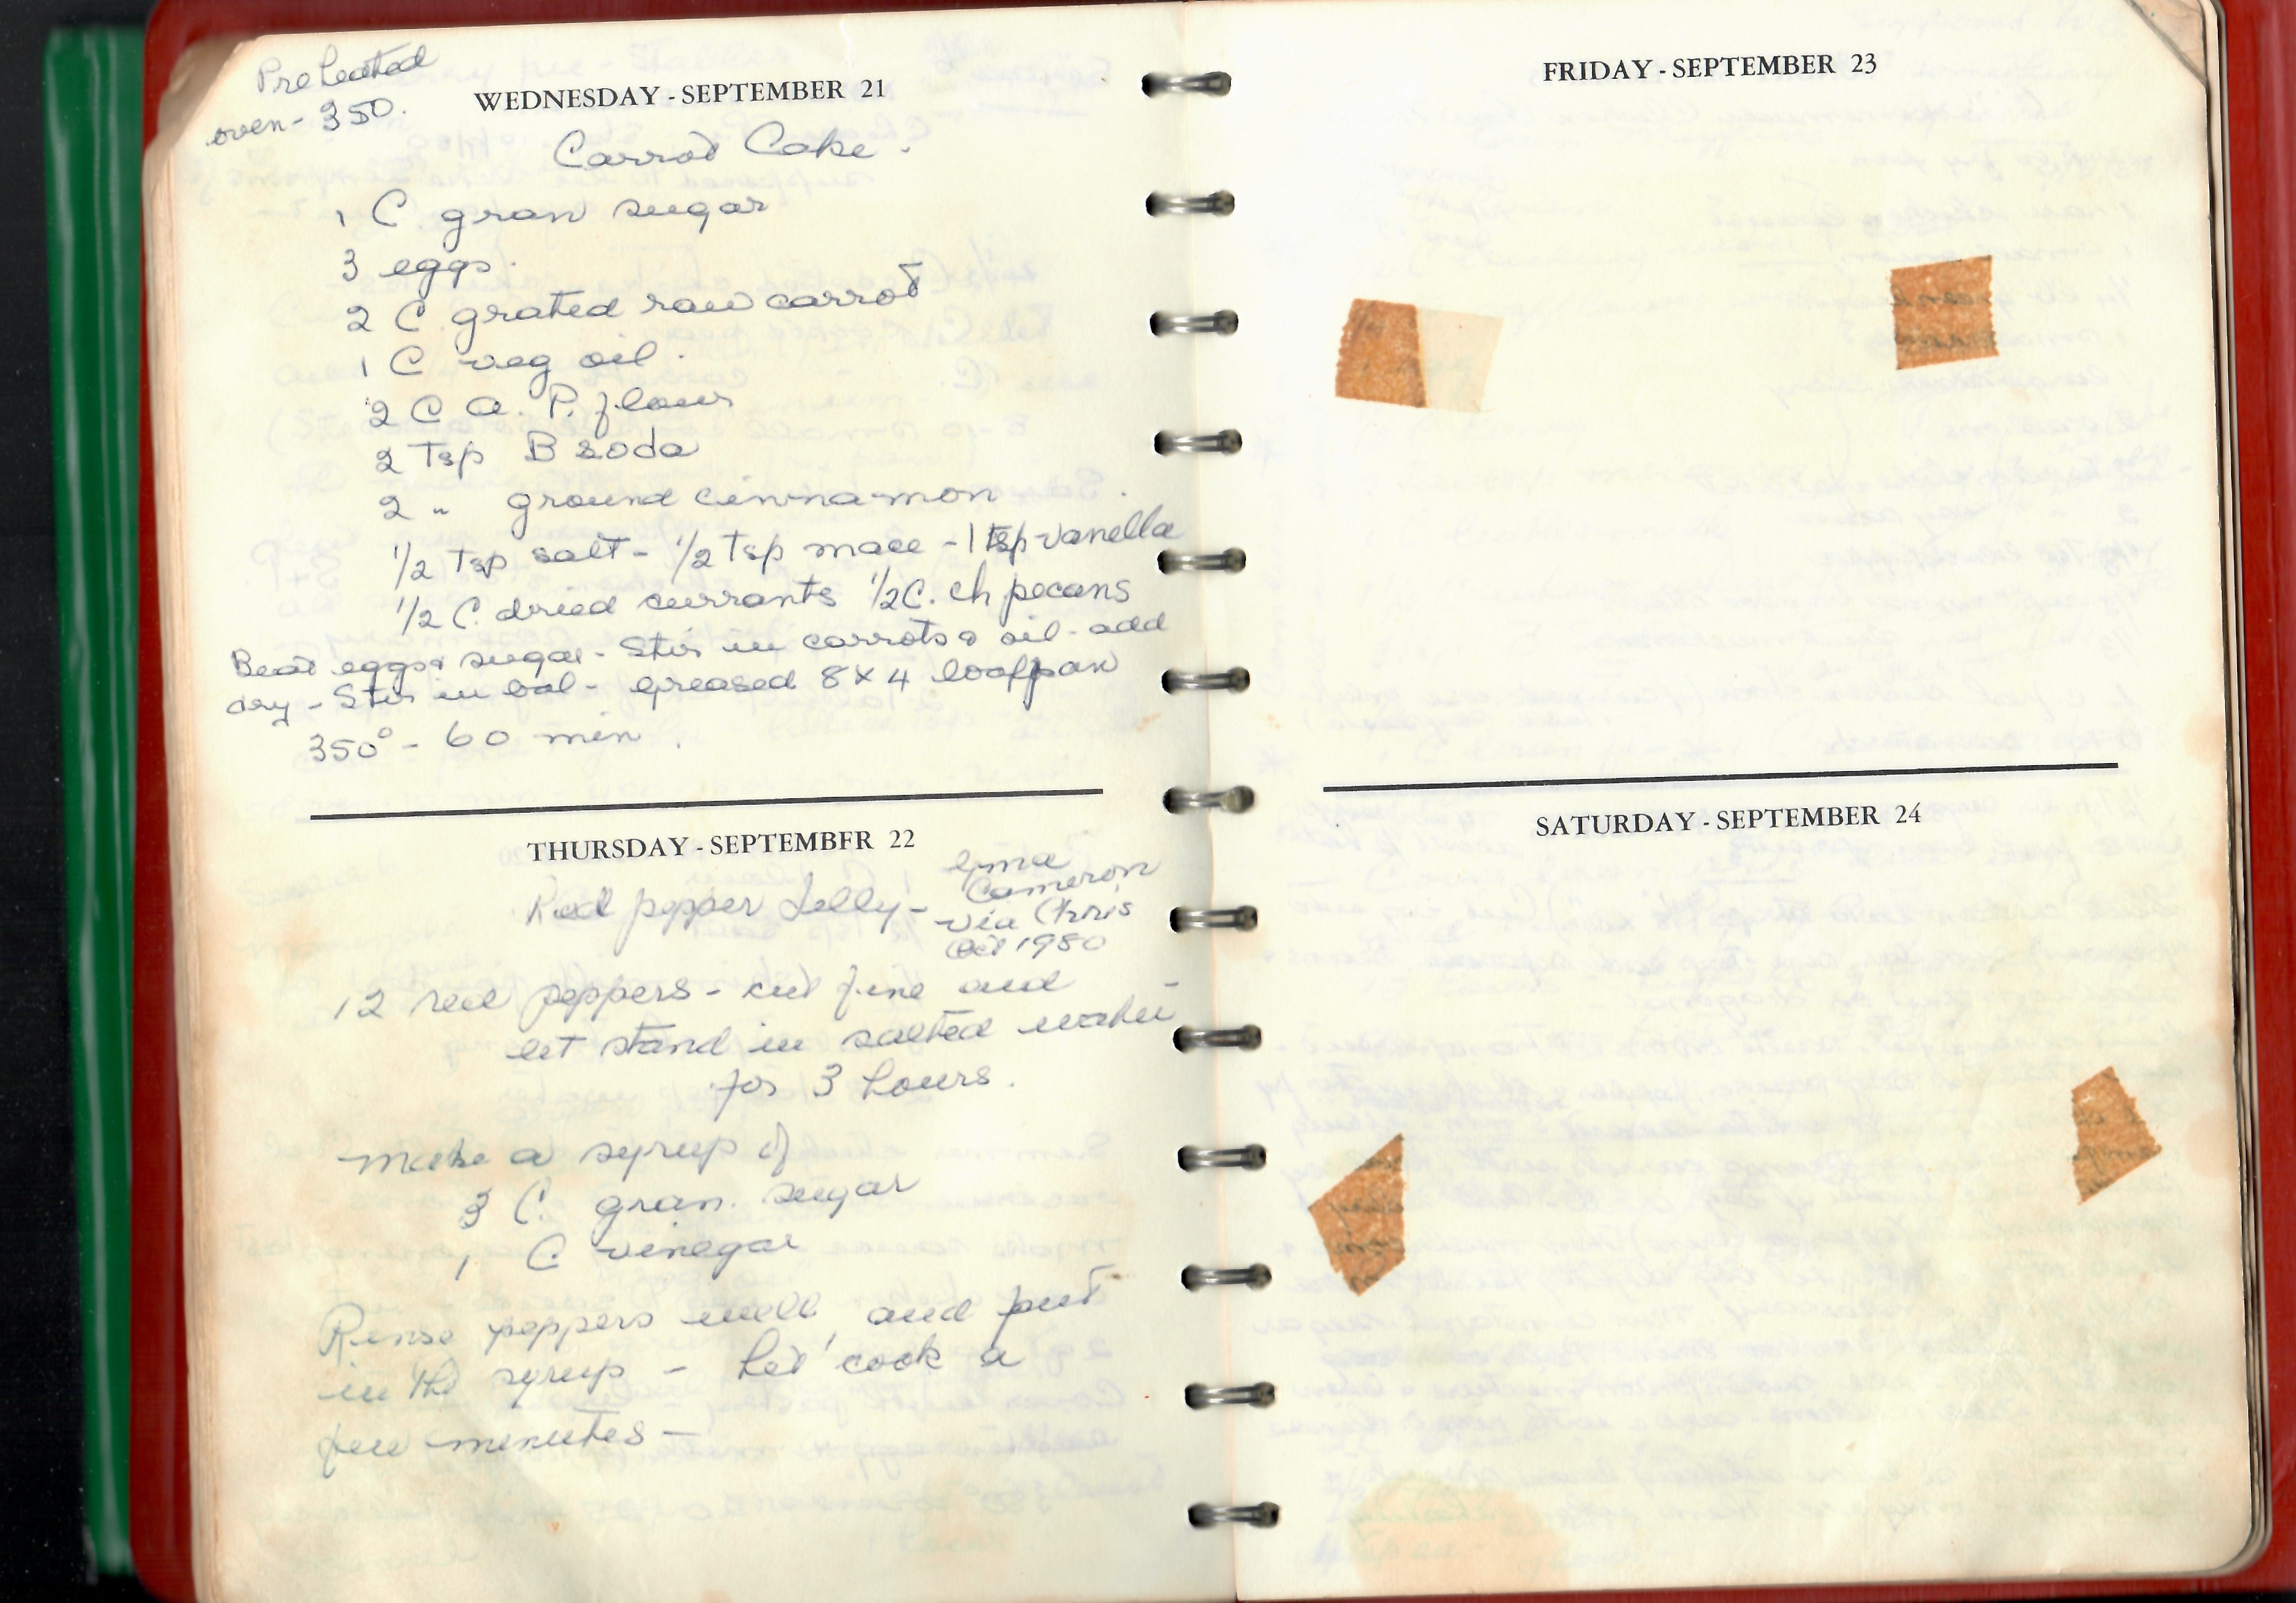 Preheated
oven - 350.
WEDNESDAY - SEPTEMBER 21
Carrot Cake.
1 C gran sugar
3 eggs.
2 C grated raw carrot
1 C veg oil.
2 C A. P. flour
2 Tsp B soda
2 " ground cinnamon
1/2 Tsp salt - 1/2 Tsp mace - 1 tsp vanella
1/2 C. dried currants 1/2 C. ch pecans
Beat eggs & sugar - Stir in carrots & oil - add
dry - Stir in bal - greased 8 x 4 loafpan
350° - 60 min.
THURSDAY - SEPTEMBER 22
Red pepper Jelly -
Cameron
via Chris
Oct 1980
12 red peppers - cut fine and
let stand in salted water
for 3 hours.
Make a syrup of
3 C. gran. sugar
1 C vinegar
Rinse peppers well and put
in the syrup - Let cook a
few minutes -
FRIDAY - SEPTEMBER 23
SATURDAY - SEPTEMBER 24